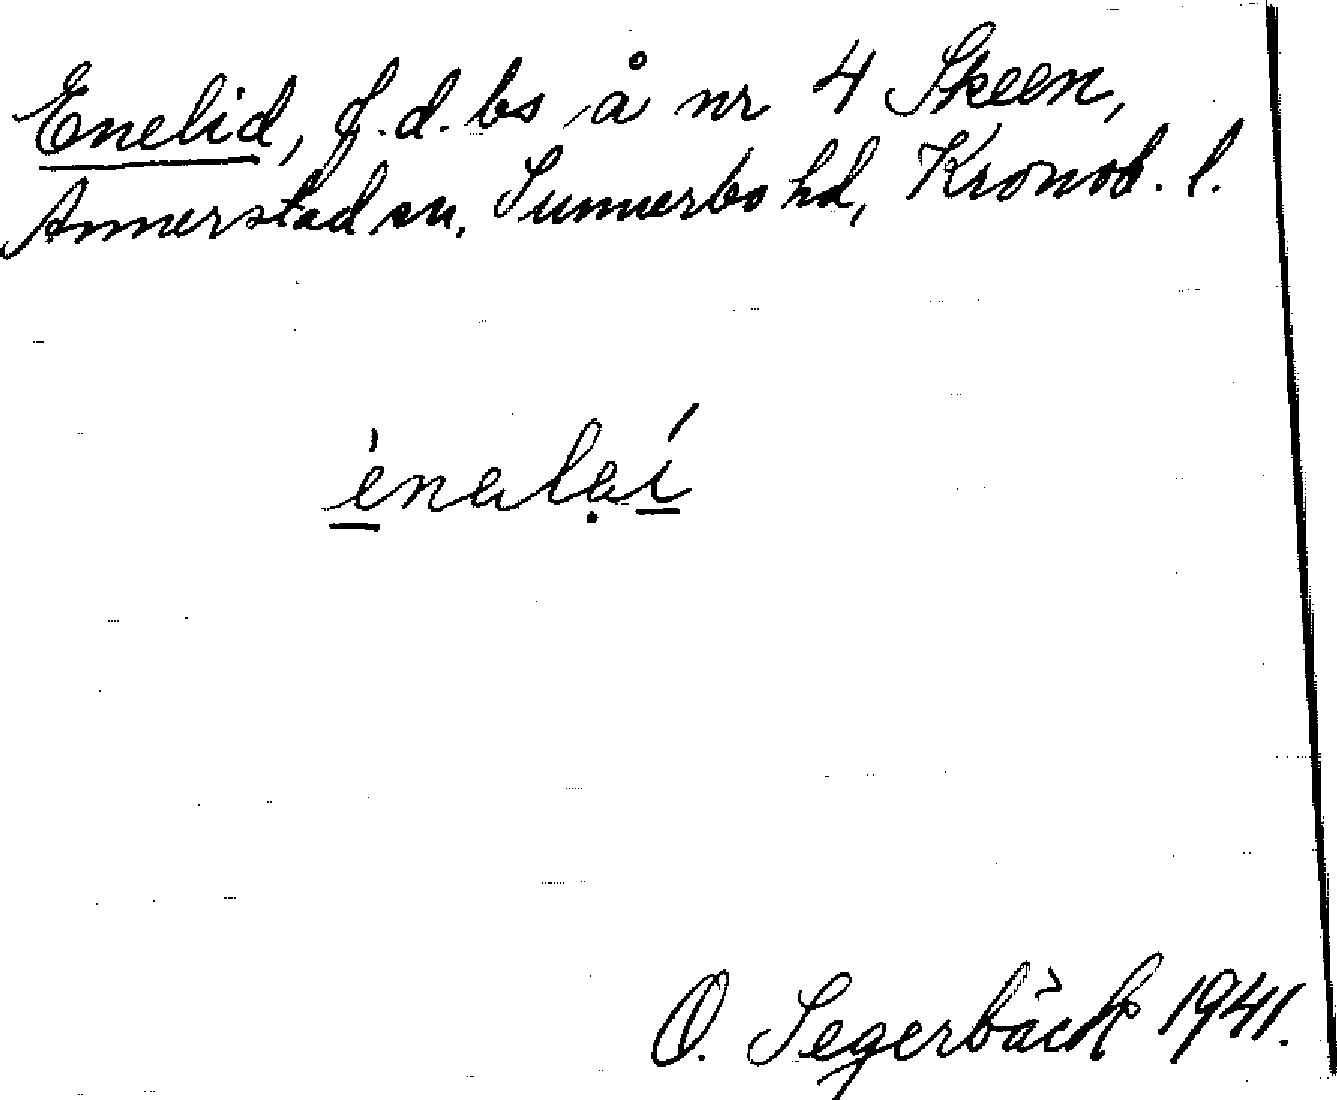 Enelid, f.d. bs å nr 4 Skeen,
Annerstad sn. Sunnerbo hd, Kronob. l.
enalai
O. Segerbäck 1941.